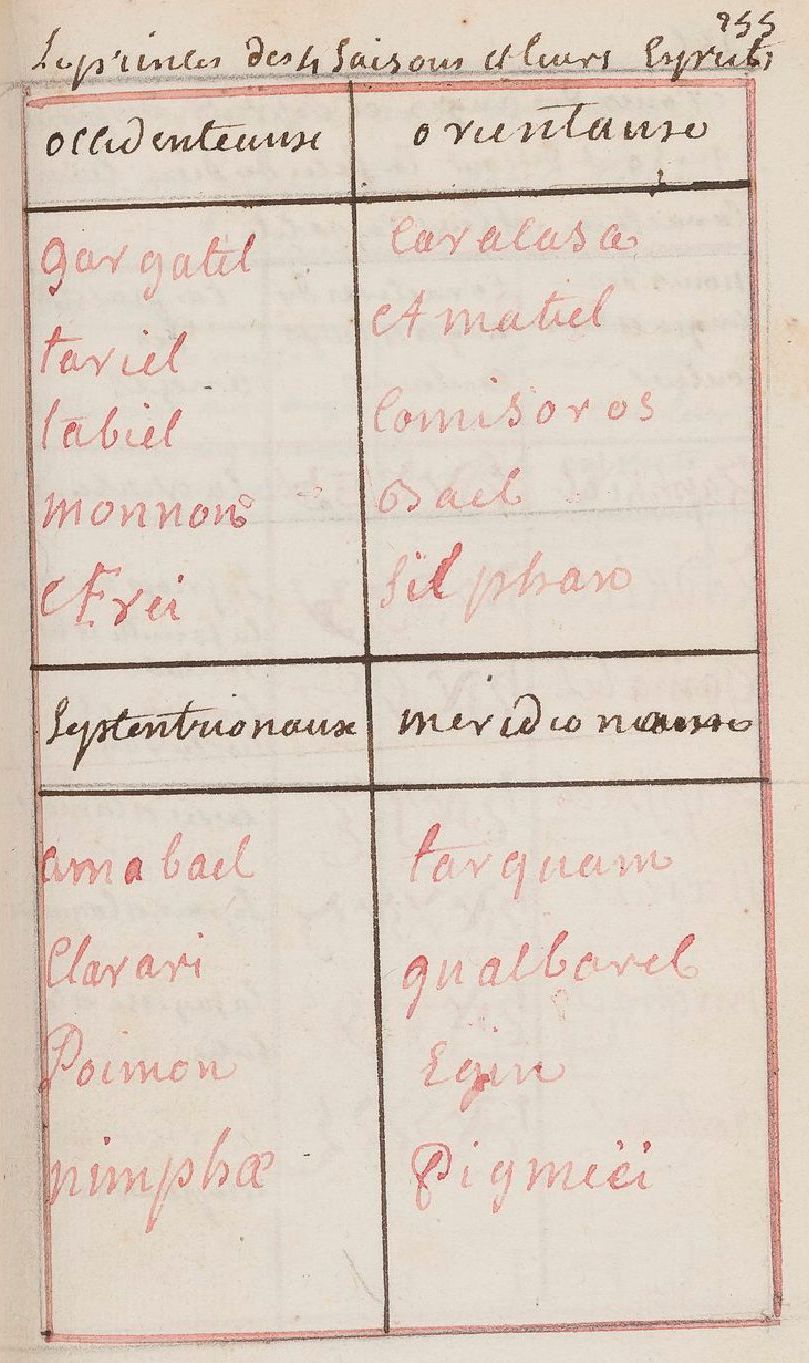 255
Les princes des 4 Saisons et leurs Esprits
occidenteause
orientause
gargatel
tariel
tabiel
monnons
Æreii
Caracasa
Amatiel
Comisoros
Osael
Silphax
Septentrionaux
meridionause
amabael
Clarari
Poimon
nimphæ
tarquam
gualbarel
Egin
Pigmeii